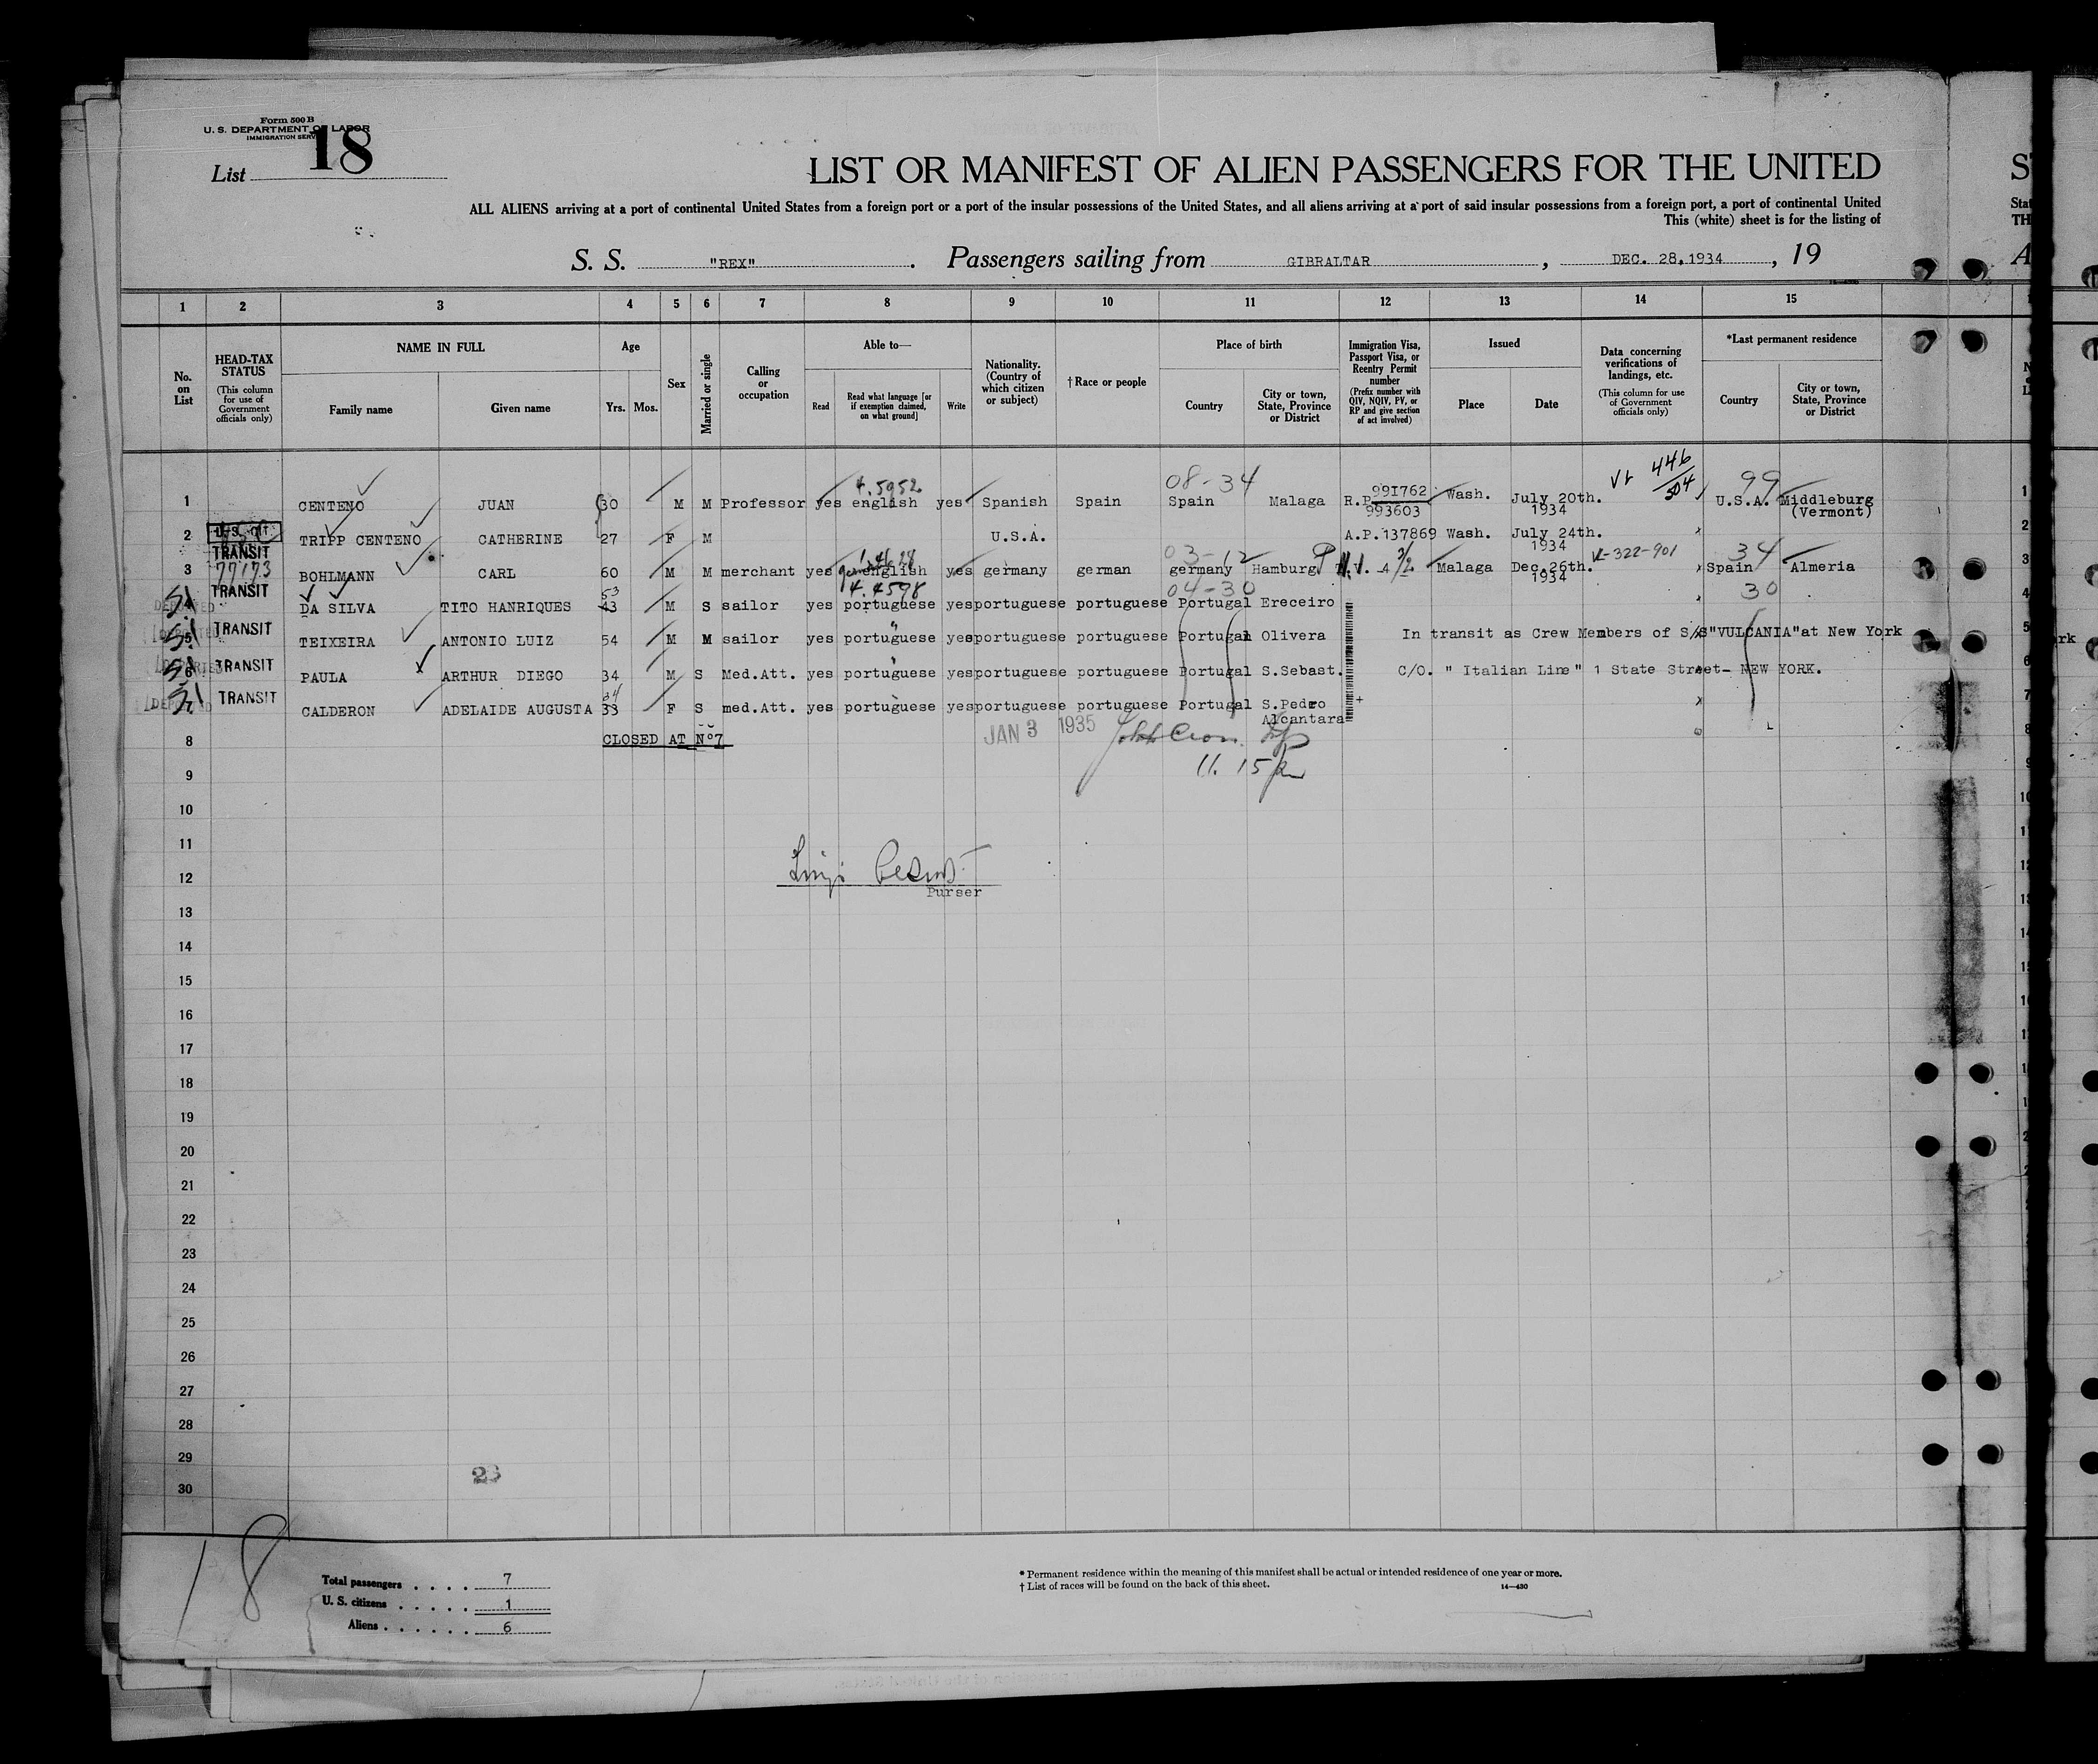 Form 500 B
U. S. DEPARTMENT OF LABOR
IMMIGRATION SERV
List 18
LIST OR MANIFEST OF ALIEN PASSENGERS FOR THE UNITED
ALL ALIENS arriving at a port of continental United States from a foreign port or a port of the insular possessions of the United States, and all aliens arriving at a port of said insular possessions from a foreign port, a port of continental United
This (white) sheet is for the listing of
S. S. "REX". Passengers sailing from GIBRALTAR, DEC. 28,1934, 19
1 2 3 4 5 6 7 8 9 10 11 12 13 14 15
No. on List
HEAD-TAX STATUS (This column for use of Government officials only)
NAME IN FULL
Family name Given name
Age
Yrs. Mos.
Sex
Married or single
Calling or occupation
Able to—
Read Read what language [or if exemption claimed, on what ground] Write
Nationality. (Country of which citizen or subject)
† Race or people
Place of birth
Country City or town, State, Province or District
Immigration Visa, Passport Visa, or Reentry Permit number (Prefix number with QIV, NQIV, PV, or RP and give section of act involved)
Issued
Place Date
Data concerning verifications of landings, etc. (This column for use of Government officials only)
*Last permanent residence
Country City or town, State, Province or District
4.5952 08-34 446/504 99
1 CENTENO JUAN 30 M M Professor yes english yes Spanish Spain Spain Malaga R.P. 991762 993603 Wash. July 20th. 1934 U.S.A. Middleburg (Vermont)
2 TRIPP CENTENO CATHERINE 27 F M U.S.A. A.P.137869 Wash. July 24th. 1934
TRANSIT 03-12 V-322-901 34
3 77173 BOHLMANN CARL 60 M M merchant yes english yes germany german germany Hamburg Malaga Dec.26th. 1934 Spain Almeria
TRANSIT 53 4.4598 04-30 30
4 DA SILVA TITO HANRIQUES 43 M S sailor yes portuguese yes portuguese portuguese Portugal Ereceiro
5 TRANSIT TEIXEIRA ANTONIO LUIZ 54 M M sailor yes portuguese yes portuguese portuguese Portugal Olivera In transit as Crew Members of S/S"VULCANIA"at New York
6 TRANSIT PAULA ARTHUR DIEGO 34 M S Med.Att. yes portuguese yes portuguese portuguese Portugal S.Sebast. C/O. " Italian Line " 1 State Street- NEW YORK.
34
7 TRANSIT CALDERON ADELAIDE AUGUSTA 33 F S med.Att. yes portuguese yes portuguese portuguese Portugal S.Pedro Alcantara
8 CLOSED AT N°7 JAN 3 1935
9 11.15 pm
10
11
12 Luigi
Purser
13
14
15
16
17
18
19
20
21
22
23
24
25
26
27
28
29
30
18
Total passengers . . . . 7
U. S. citizens . . . . . 1
Aliens . . . . . . 6
* Permanent residence within the meaning of this manifest shall be actual or intended residence of one year or more.
† List of races will be found on the back of this sheet.
14—430